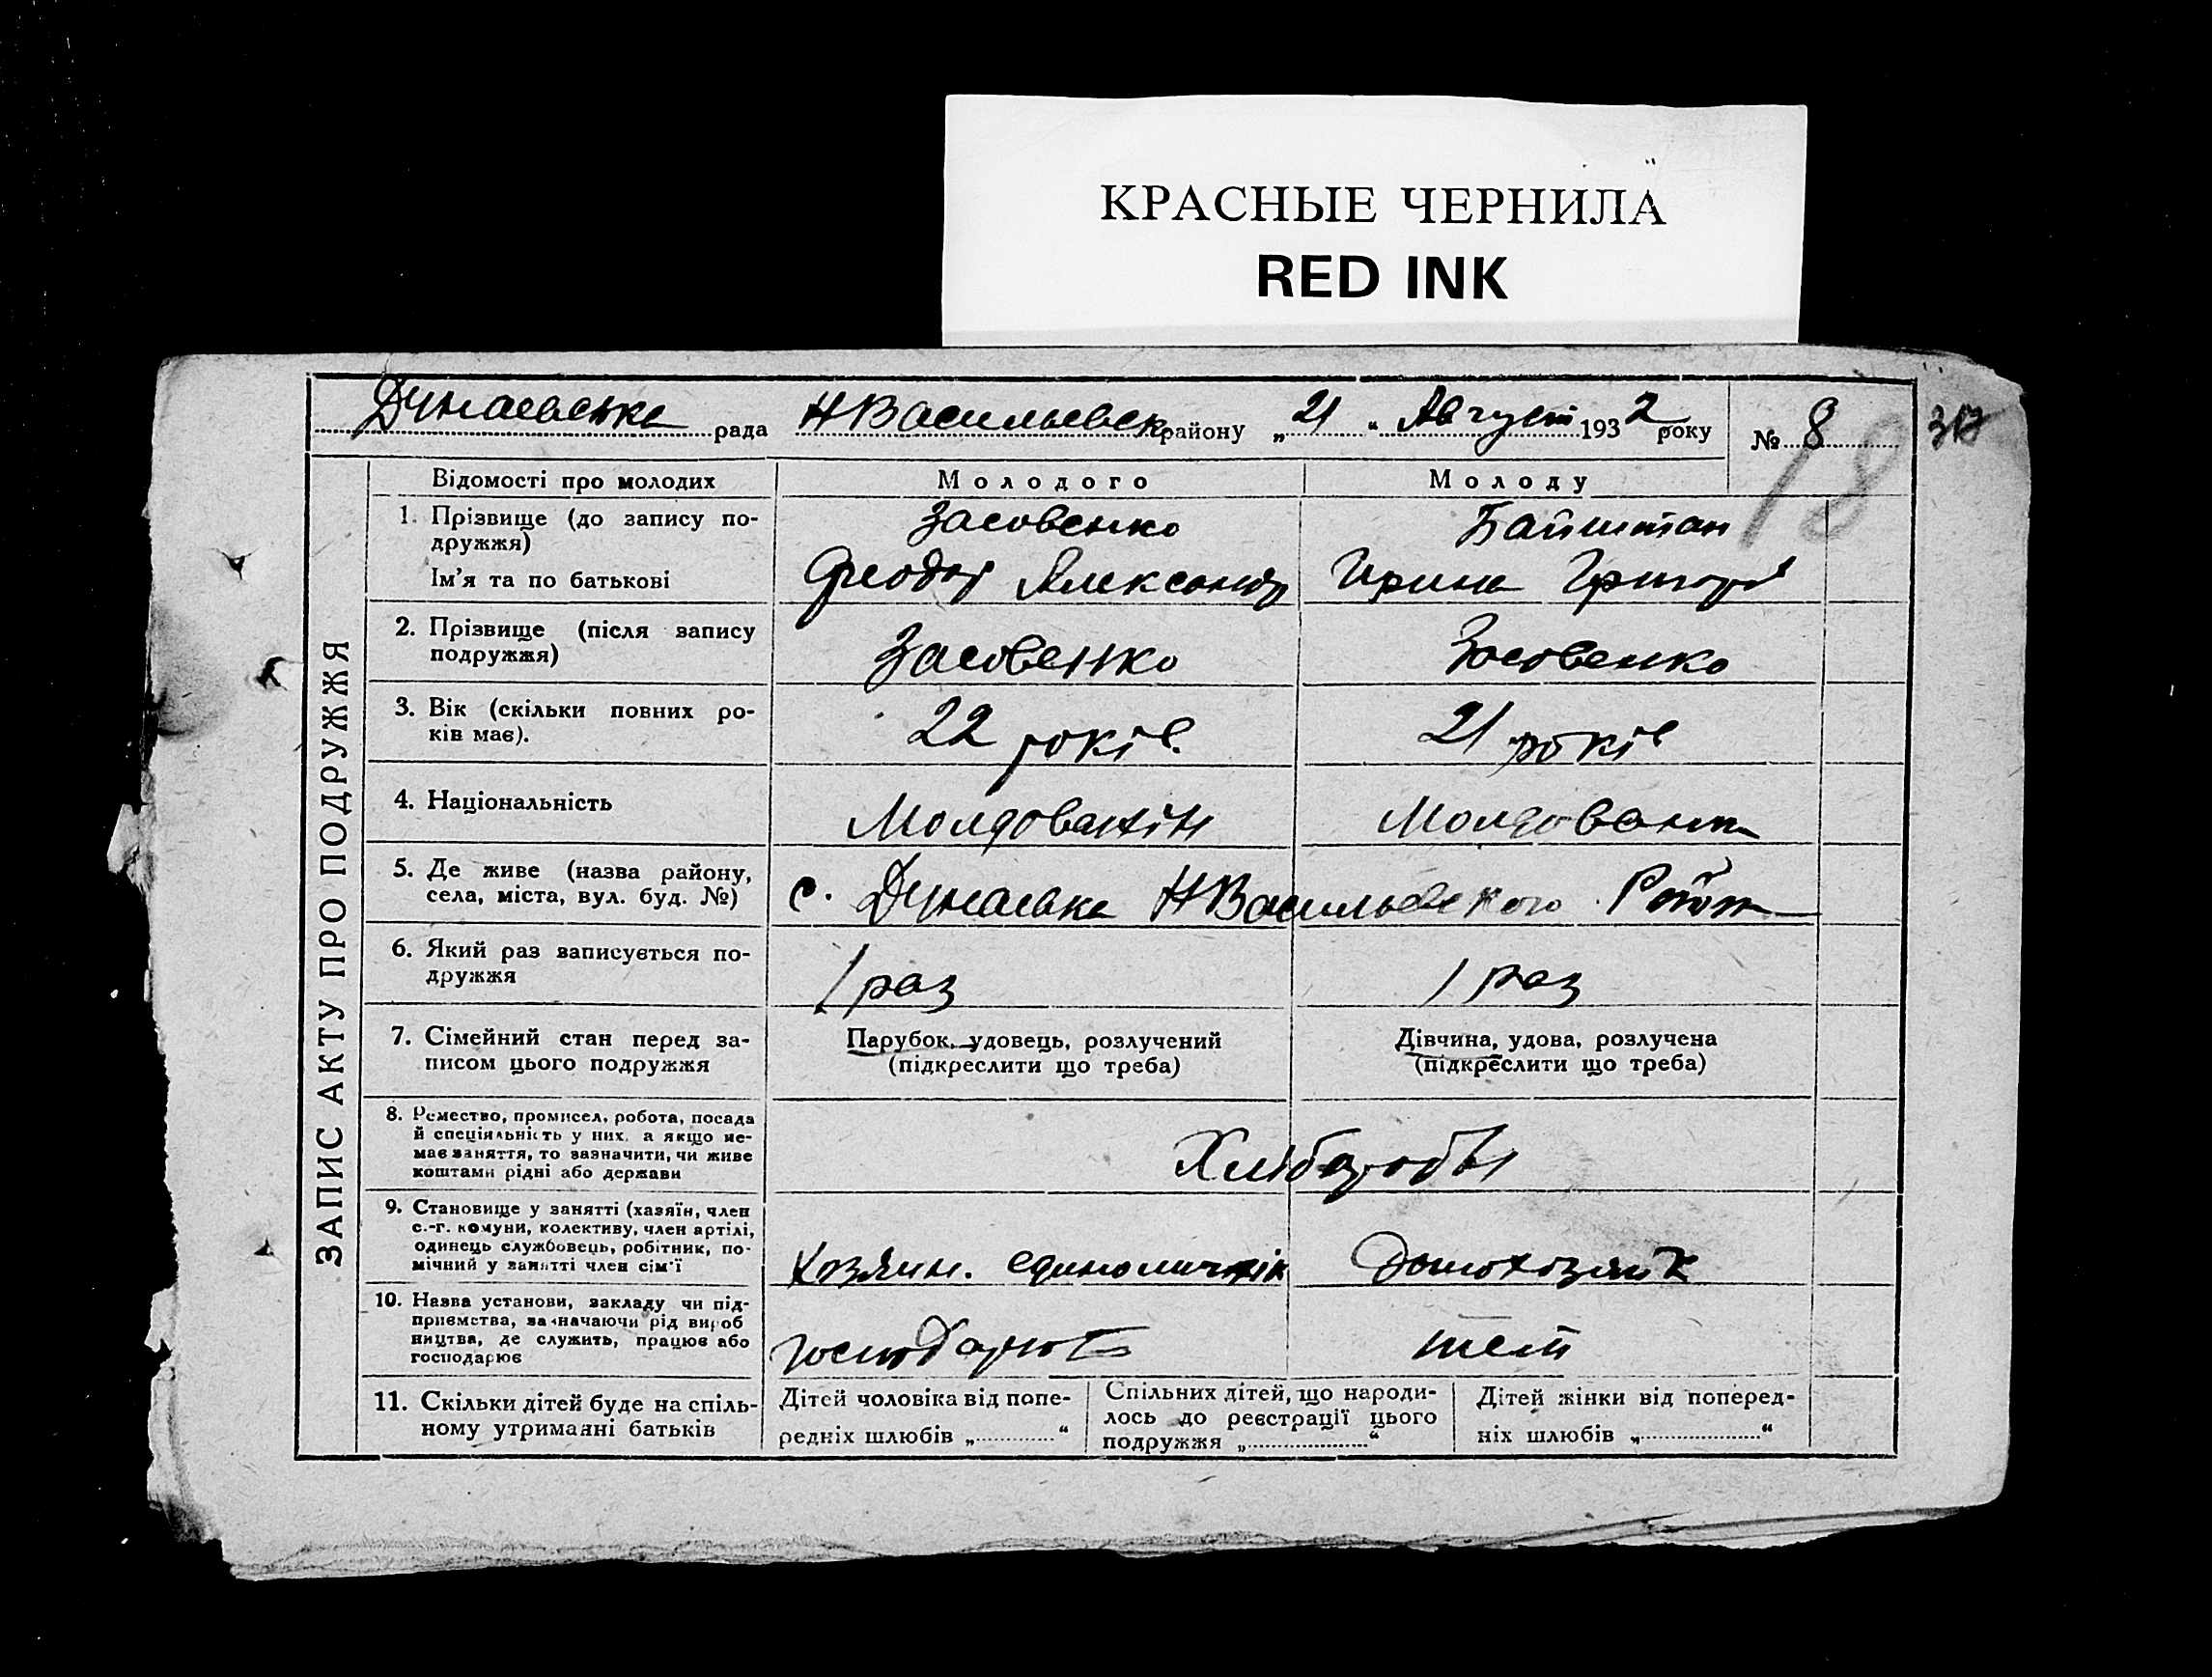 КРАСНЫЕ ЧЕРНИЛА
RED INK
Дунаевська рада НВасильевск району „21“ Август 1932 року № 8
18
ЗАПИС АКТУ ПРО ПОДРУЖЖЯ
Відомості про молодих Молодого Молоду
1. Прізвище (до запису по- Засовенко Баиштан
дружжя)
Ім'я та по батькові Феодор Александр Ирина Григорів
2. Прізвище (після запису Засовенко Засовенко
подружжя)
3. Вік (скільки повних ро- 22 років. 21 років
ків має).
4. Національність Молдованін Молдованка
5. Де живе (назва району, с. Дунаевка НВасильевского
села, міста, вул. буд. №)
6. Який раз записується по- 1 раз 1 раз
дружжя
7. Сімейний стан перед за- Парубок, удовець, розлучений Дівчина, удова, розлучена
писом цього подружжя (підкреслити що треба) (підкреслити що треба)
8. Ремество, промисел, робота, посада
й спеціяльність у них, а якщо не- Хліборобы
має заняття, то зазначити, чи живе
коштами рідні або держави
9. Становище у занятті (хазяїн, член
с.-г. комуни, колективу, член артілі,
одинець службовець, робітник, по- Хозяин. единоличнік Домохозяик
мічний у занятті член сім'ї
10. Назва установи, закладу чи під-
приємства, зазначаючи рід вироб
ництва, де служить, працює або господарюе теж
господарює
11. Скільки дітей буде на спіль- Дітей чоловіка від попе- Спільних дітей, що народи- Дітей жінки від поперед-
ному утриманні батьків редніх шлюбів „ “ лось до реєстрації цього ніх шлюбів „ “
подружжя „ “